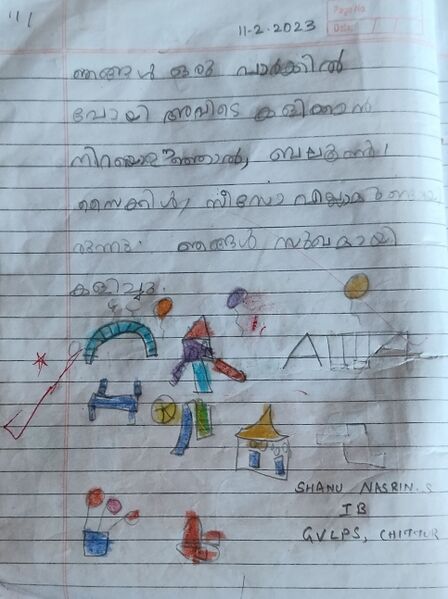 Page No.
Date
11-2-2023
ഞങ്ങൾ ഒരു പാർക്കിൽ
പോയി അവിടെ കളിക്കാൻ
ഊഞ്ഞാൽ, ബലൂൺ
സൈക്കിൾ, സീസോ എല്ലാം
രുന്നു. ഞങ്ങൾ സുഖമായി
കളിച്ചു.
SHANU NASRIN.S
IB
GVLPS, CHITTUR